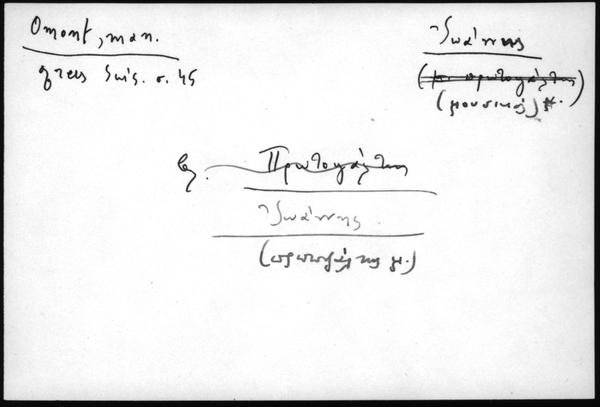 Omont, man.
grecs Suis. σ. 45
Ἰωάννης
(μουσικός) *.
βλ. Πρωτοψάλτης
Ἰωάννης
(πρωτοψάλτης μ.)